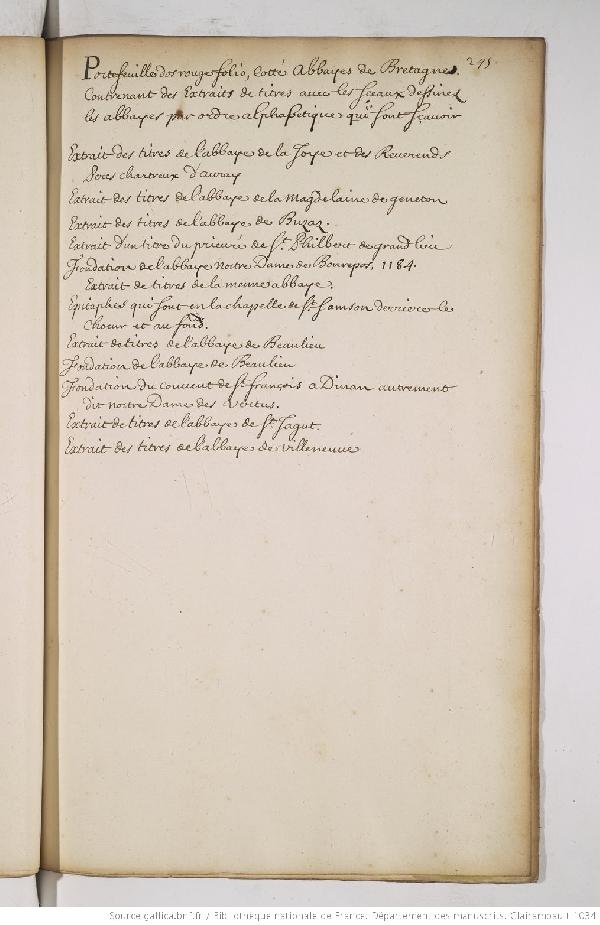 245.
Portefeuille dos rouge folio, Cotté Abbayes de Bretagne.
Contenant des Extraits de titres avec les sceaux dessinez
les abbayes par ordre alphabetique qui sont sçavoir
Extrait des titres de l'abbaye de la Joye et des Reverends
Peres chartreux d'auray
Extrait des titres de l'abbaye de la Magdelaine de geneton
Extrait des titres de l'abbaye de Buzay.
Extrait d'un titre du prieuré de St. Philbert de grand lieu
Fondation de l'abbaye Nostre Dame de Bonrepos, 1184.
Extrait de titres de la mesme abbaye.
Epitaphes qui sont en la chapelle de St. Samson derriere le
Choeur et au fond.
Extrait de titres de l'abbaye de Beaulieu
Fondation de l'abbaye de Beaulieu
Fondation du couvent de St. François a Dinan autrement
dit nostre Dame des Vertus.
Extrait de titres de l'abbaye de St. Jagut.
Extrait des titres de l'abbaye de Villeneuve
Source gallica.bnf.fr / Bibliothèque nationale de France. Département des manuscrits. Clairambault 1034